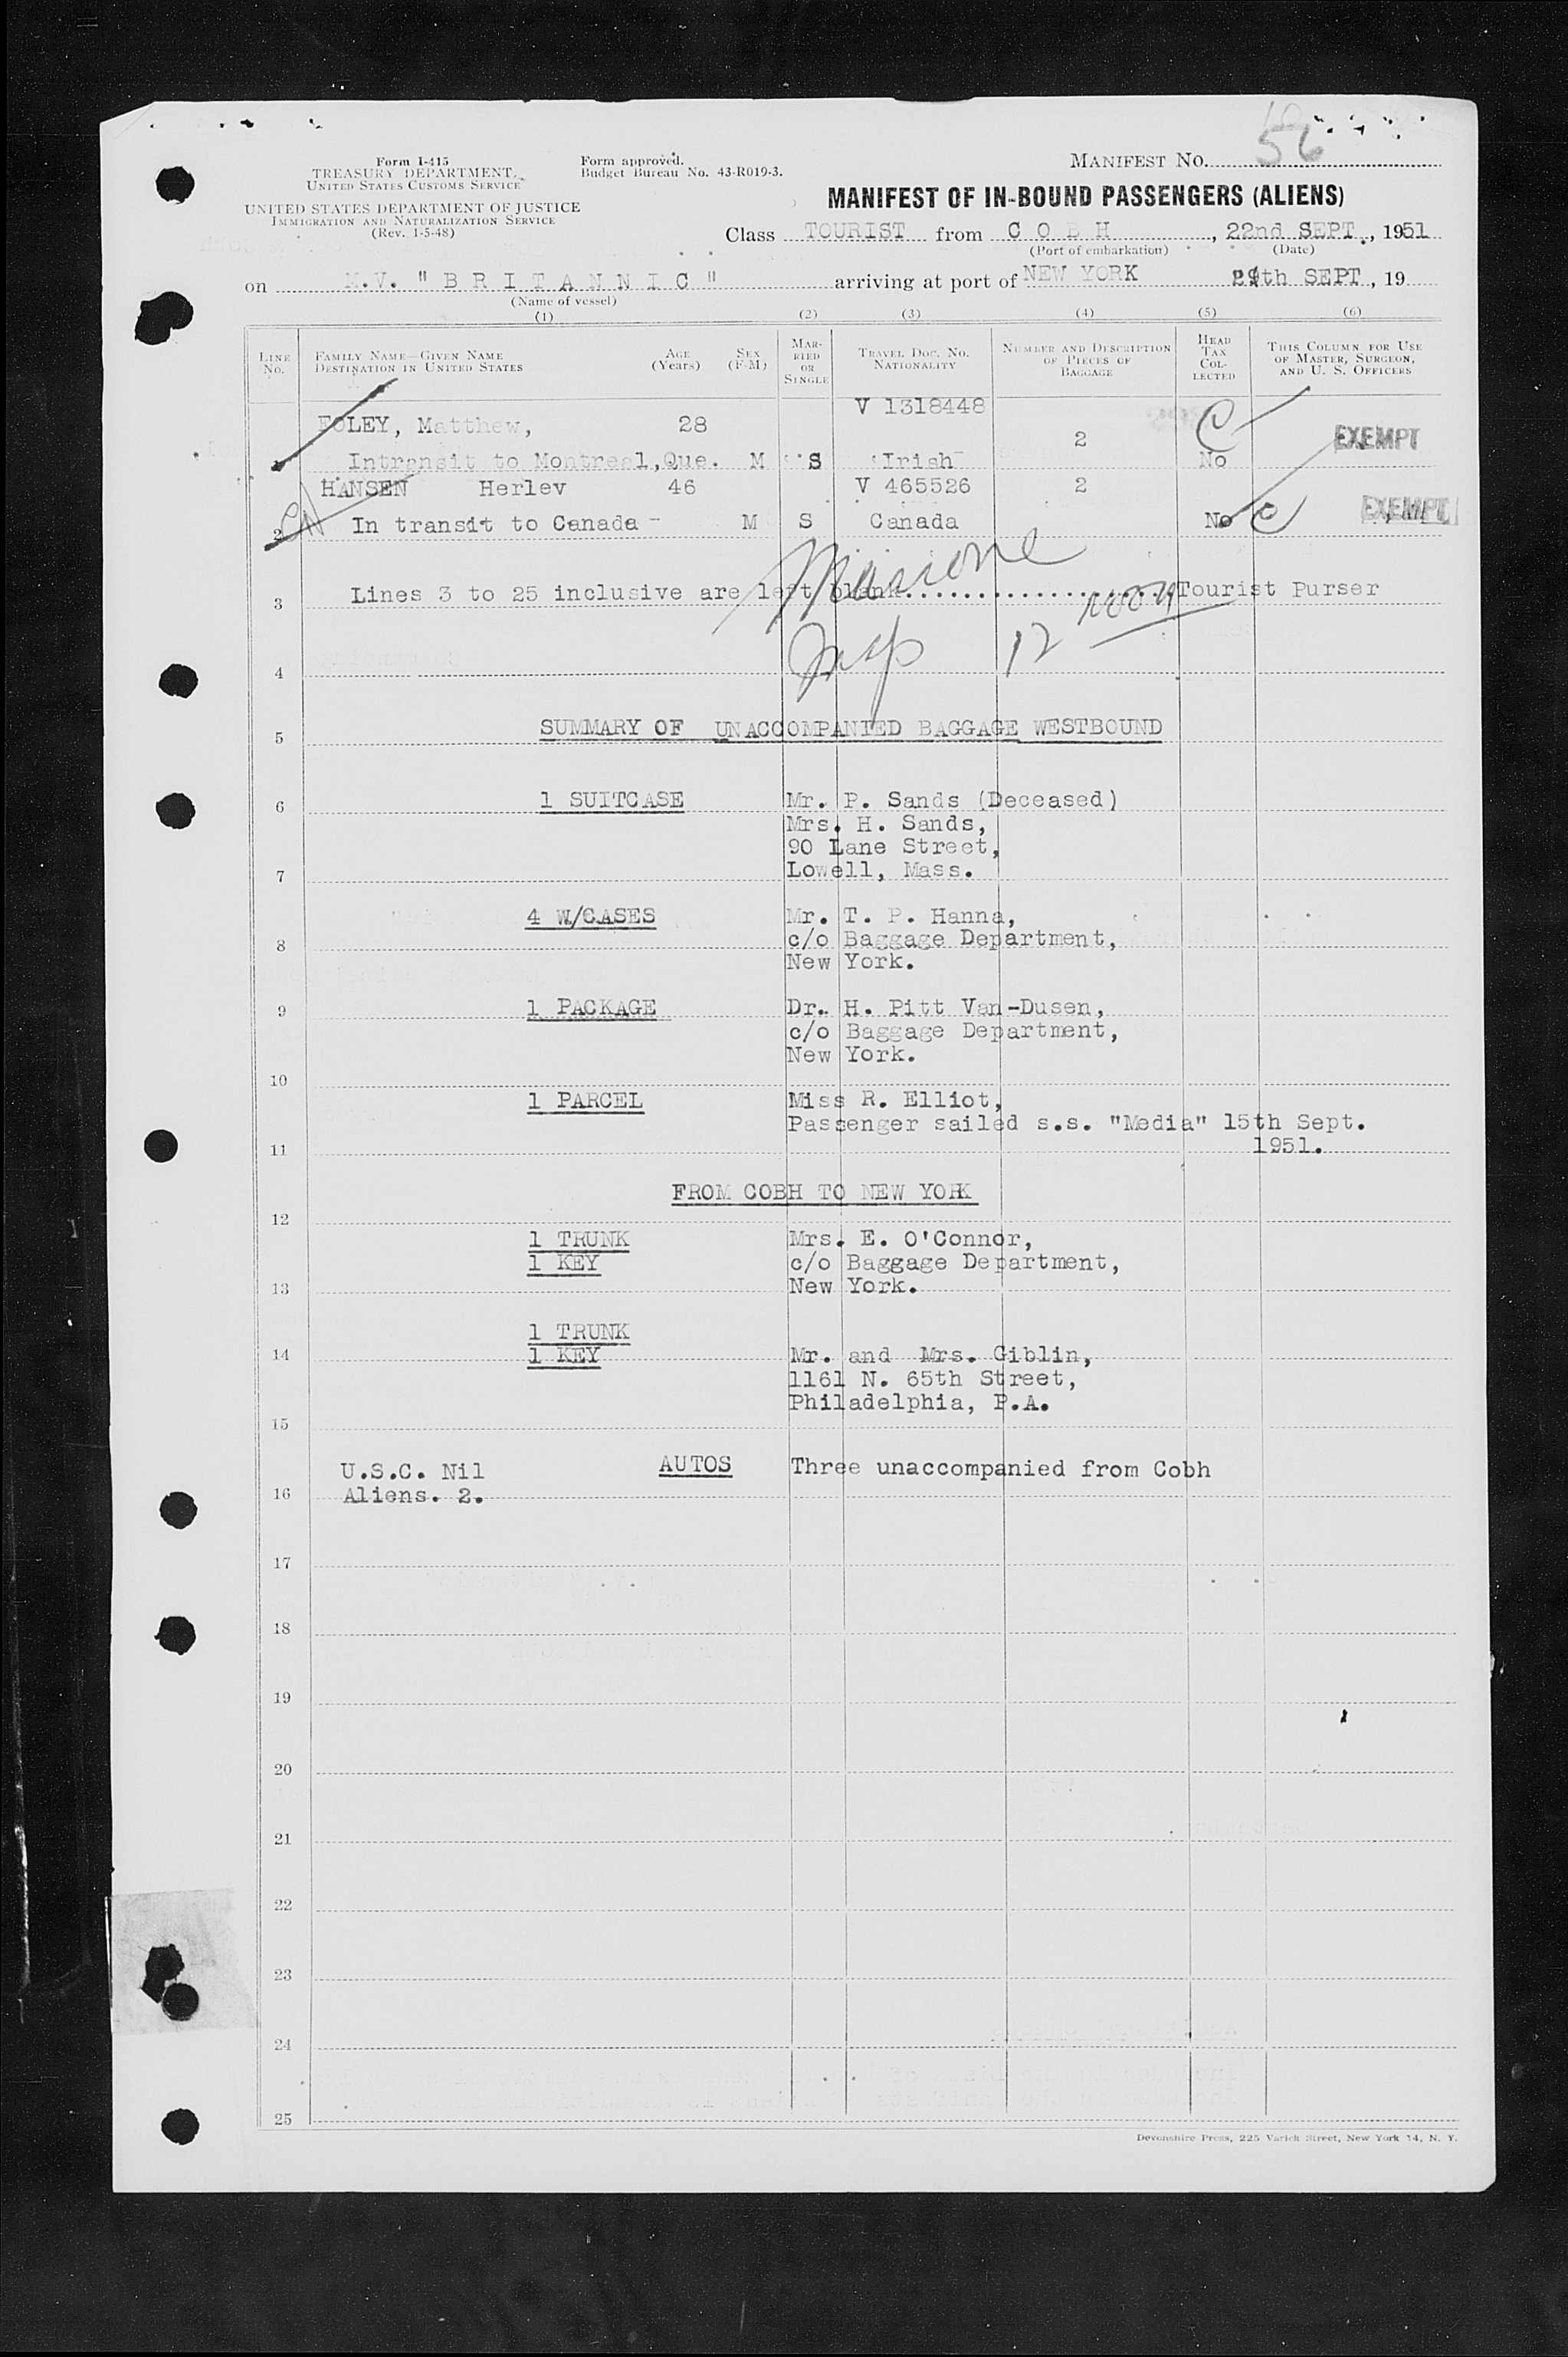 56
Form I-415
TREASURY DEPARTMENT
UNITED STATES CUSTOMS SERVICE
UNITED STATES DEPARTMENT OF JUSTICE
IMMIGRATION AND NATURALIZATION SERVICE
(Rev. 1-5-48)
Form approved.
Budget Bureau No. 43-R019-3.
MANIFEST No.
MANIFEST OF IN-BOUND PASSENGERS (ALIENS)
Class TOURIST from C O B H, 22nd SEPT., 1951
(Port of embarkation) (Date)
on M.V. "B R I T A N N I C" arriving at port of NEW YORK th SEPT, 19
(Name of vessel)
(1) (2) (3) (4) (5) (6)
LINE No. FAMILY NAME—GIVEN NAME DESTINATION IN UNITED STATES AGE (Years) SEX (F-M) MARRIED OR SINGLE TRAVEL DOC. No. NATIONALITY NUMBER AND DESCRIPTION OF PIECES OF BAGGAGE HEAD TAX COLLECTED THIS COLUMN FOR USE OF MASTER, SURGEON, AND U. S. OFFICERS
FOLEY, Matthew, 28 V 1318448 2 C EXEMPT
1 Intransit to Montreal,Que. M S Irish No
HANSEN Herlev 46 V 465526 2
2 In transit to Canada - M S Canada No C EXEMPT
3 Lines 3 to 25 inclusive are left blank. Tourist Purser
Insp 12 noon
4
5 SUMMARY OF UNACCOMPANIED BAGGAGE WESTBOUND
6 1 SUITCASE Mr. P. Sands (Deceased)
Mrs. H. Sands,
90 Lane Street,
7 Lowell, Mass.
4 W/CASES Mr. T. P. Hanna,
8 c/o Baggage Department,
New York.
9 1 PACKAGE Dr. H. Pitt Van-Dusen,
c/o Baggage Department,
New York.
10
1 PARCEL Miss R. Elliot,
Passenger sailed s.s. "Media" 15th Sept.
11 1951.
FROM COBH TO NEW YORK
12
1 TRUNK Mrs. E. O'Connor,
1 KEY c/o Baggage Department,
13 New York.
1 TRUNK
14 1 KEY Mr. and Mrs. Giblin,
1161 N. 65th Street,
Philadelphia, P.A.
15
U.S.C. Nil AUTOS Three unaccompanied from Cobh
16 Aliens. 2.
17
18
19
20
21
22
23
24
25
Devonshire Press, 225 Varick Street, New York 14, N. Y.